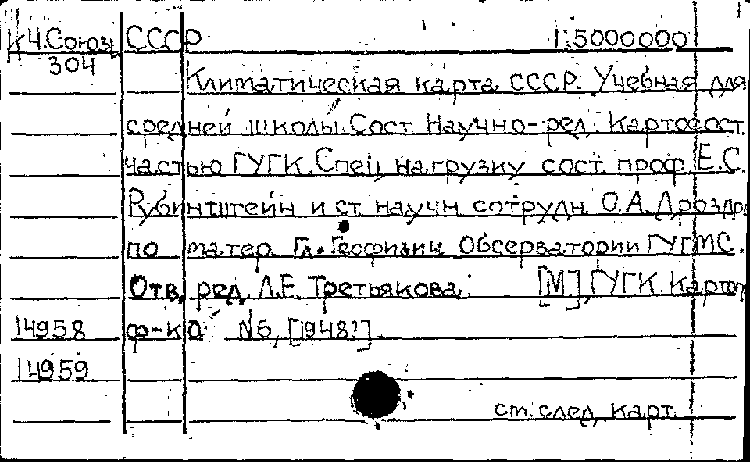 К Ч.Союз СССР 1:5000000
304
Климатическая карта СССР. Учебная для
средней школы. Сост. Научно-ред. Картосост.
частью ГУГК. Спец. нагрузку сост. проф. Е.С.
Рубинштейн и ст. научн. сотрудн. О.А. Дроздо
по матер. Гл. Геофизич. Обсерватории ГУГМС.
Отв. ред. Л.Е. Третьякова. [М.], ГУГК. Картог
14958 ф-ка N5, [1948?]
14959
см. след. карт.